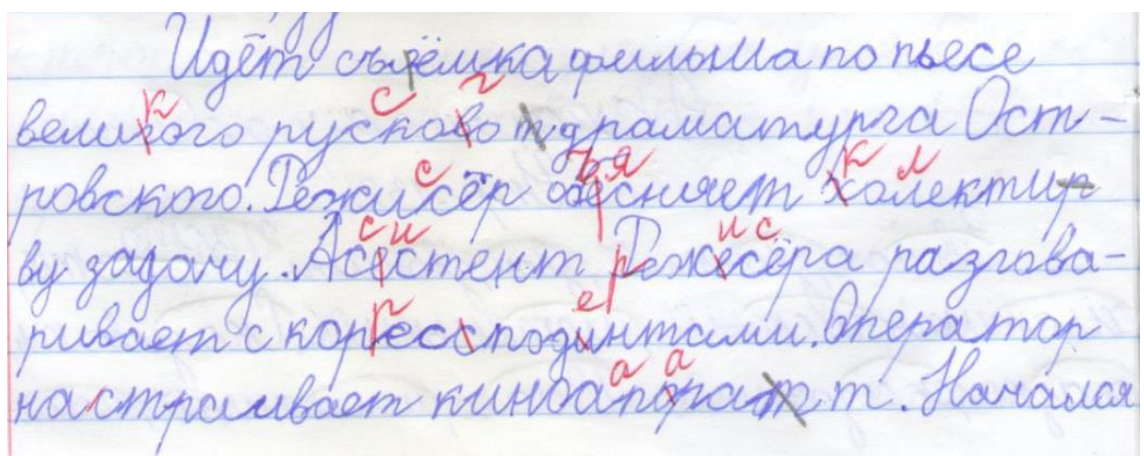 Идёт съёмка фильма по пьесе
великого русково драматурга Ост-
ровского. Режисёр обесняет холекти-
ву задачу. Асестент Режесёра разгова-
ривает с корессподинтами. Оператор
настраивает киноапорат. Начался